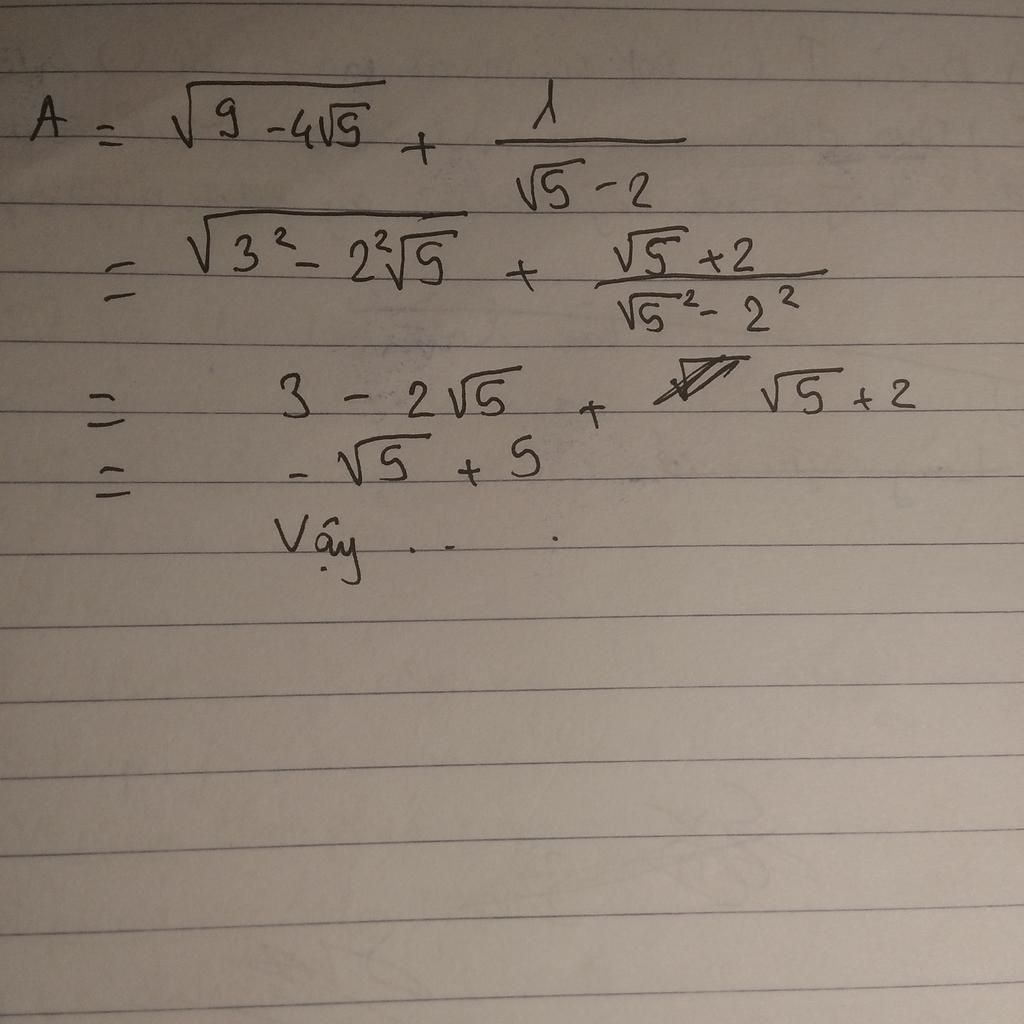 A = √(9 - 4√5) + 1/(√5 - 2)
= √(3² - 2²√5) + (√5 + 2)/(√5² - 2²)
= 3 - 2√5 + √5 + 2
= - √5 + 5
Vậy . . - .